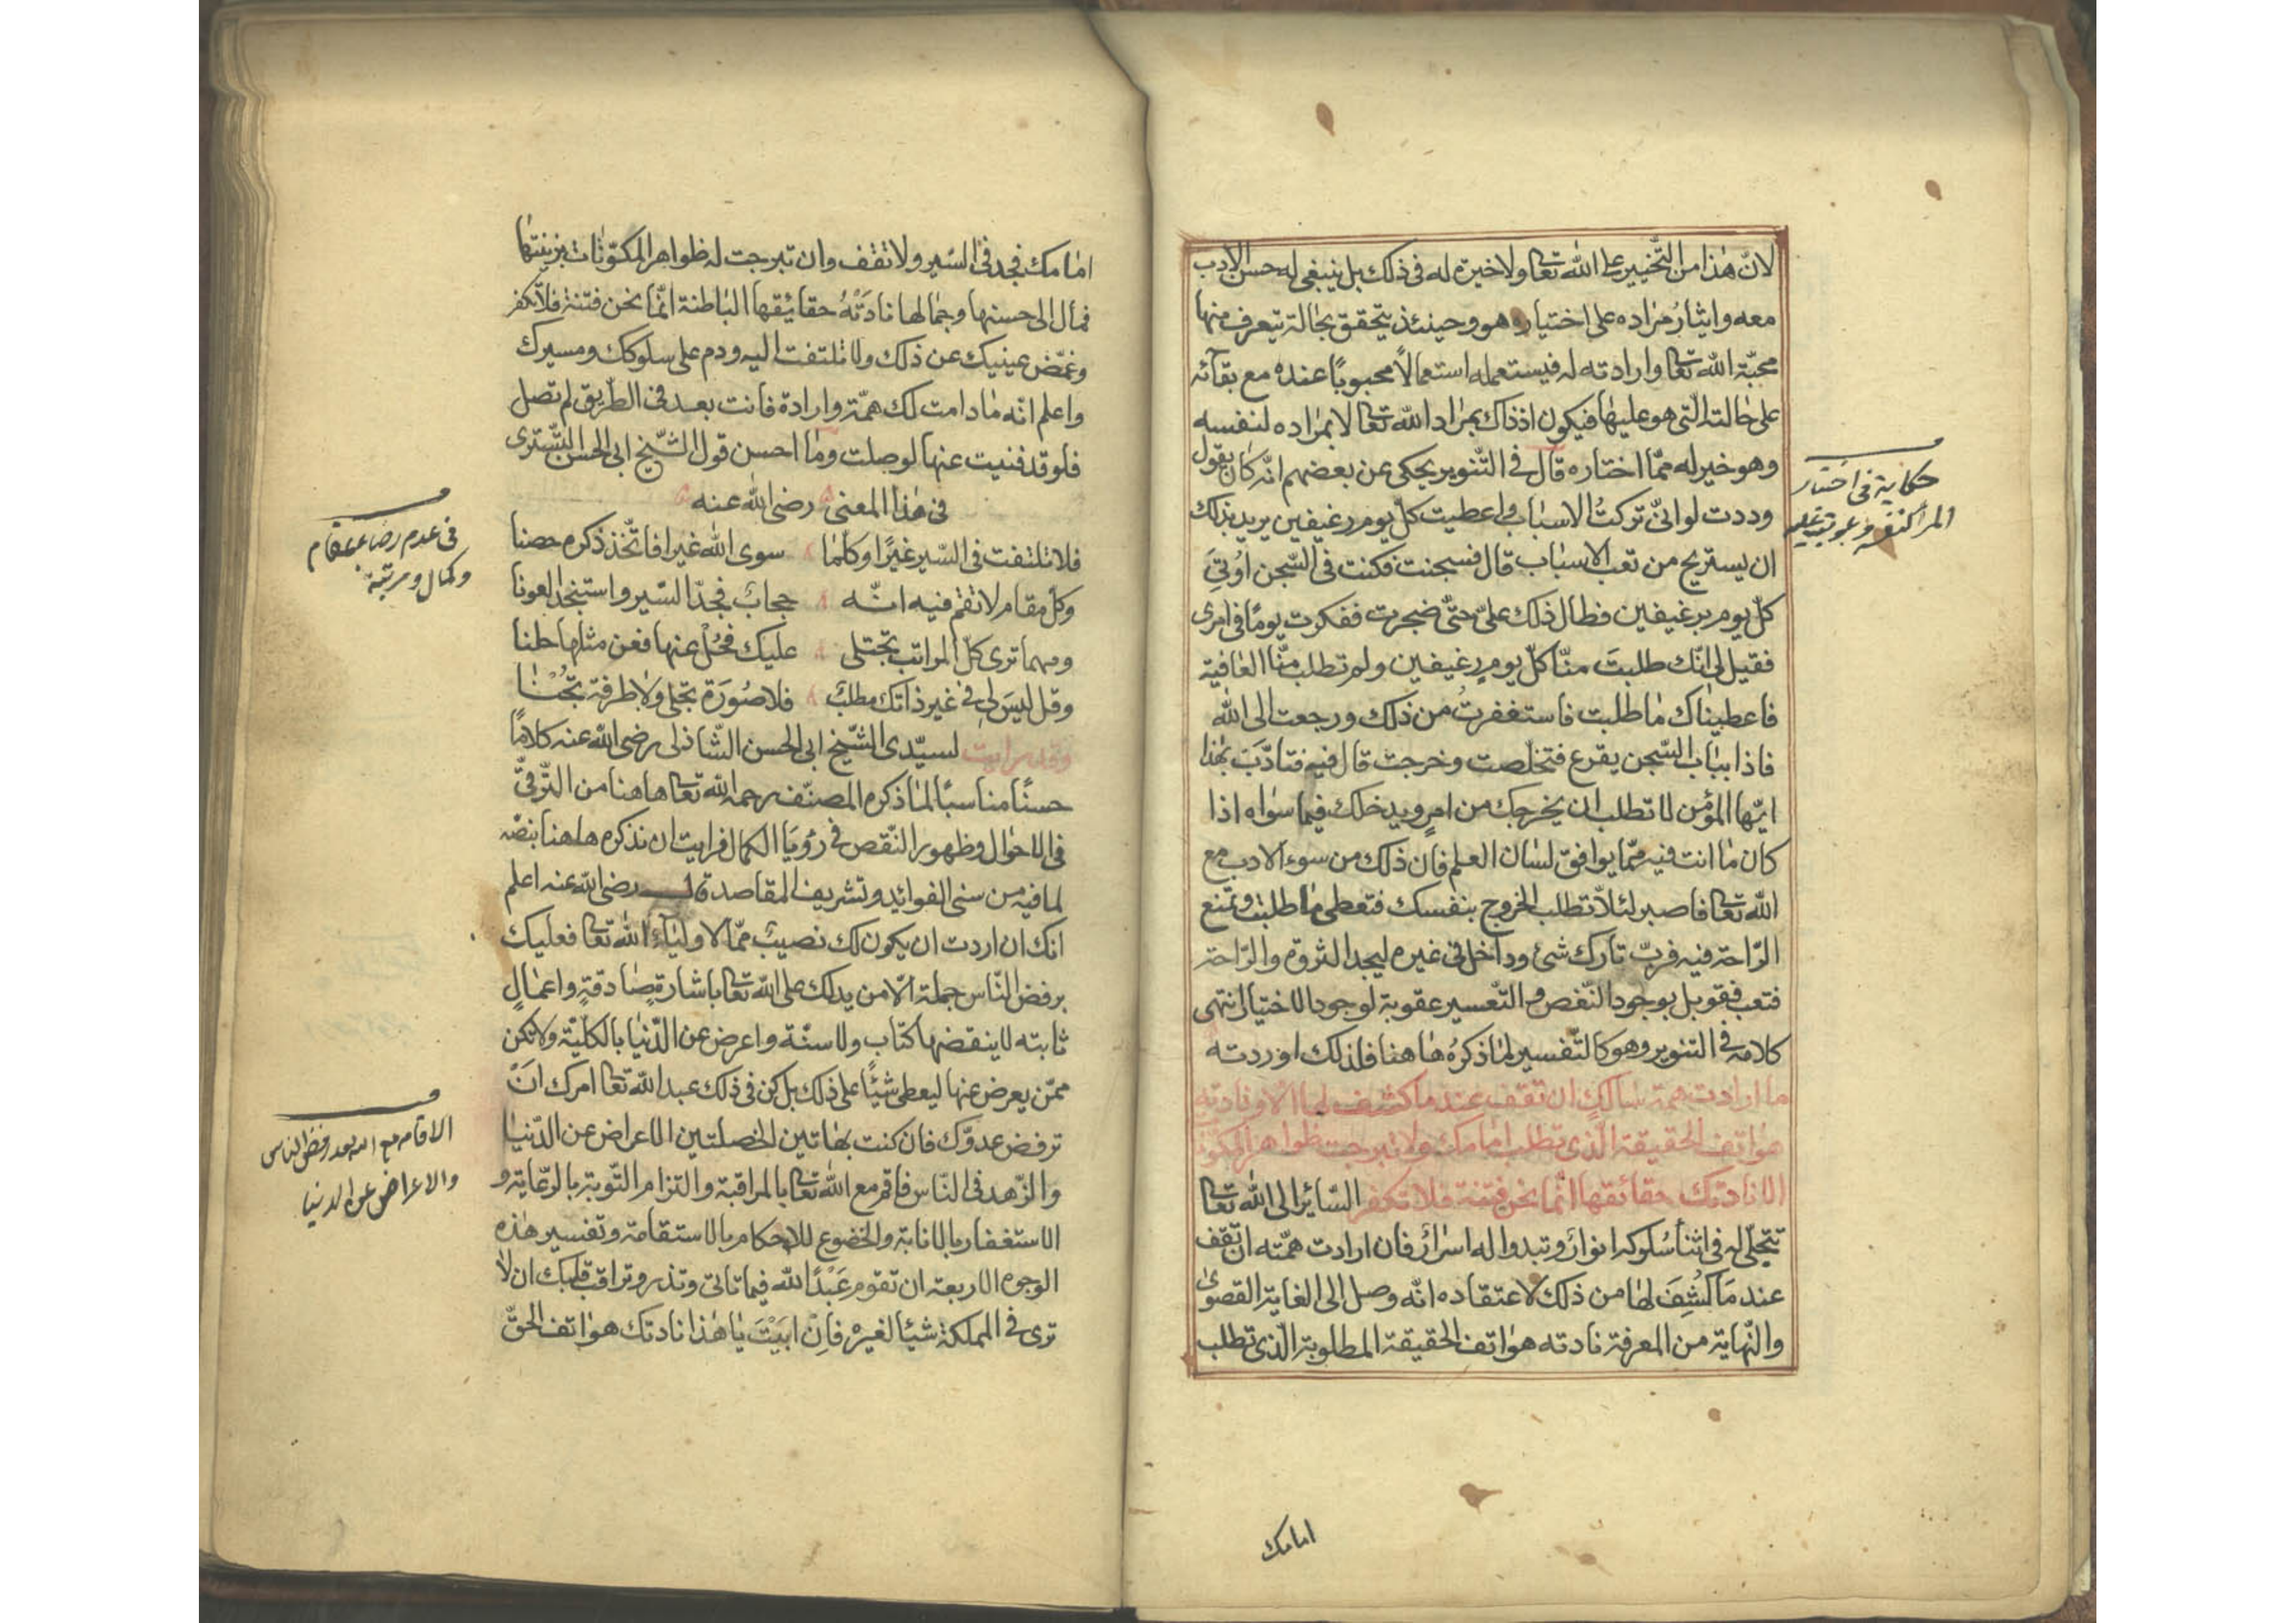 لانّ هذا من التّخيير على الله تعا ولا خيرة له فى ذلك بل ينبغى له حسن الادب
معه وايثار مراده على اختياره هو وحينئذ يتحقق بحالة يتعرف منها
محبّة الله تعا وارادته له فيستعمله استعمالاً محبوبًا عنده مع بقآئه
على حالته الّتى هو عليها فيكون اذ ذاك بمراد الله تعا لا بمراده لنفسه
وهو خير له ممّا اختاره قال فى التّنوير يحكى عن بعضهم انّه كان يقول
وددت لو انّى تركتُ الاسباب واعطيت كلّ يوم رغيفين يريد بذلك
ان يستريح من تعب الاسباب قال فسجنت فكنت فى السّجن اُوتِىَ
كلّ يوم برغيفين فطال ذلك علىّ حتىّ ضجرت ففكرت يومًا فى امرى
فقيل لى انّك طلبتَ منّا كلّ يومٍ رغيفين ولم تطلب منّا العافية
فاعطيناك ما طلبت فاستغفرتُ من ذلك ورجعت الى الله
فاذا بباب السّجن يقرع فتخلّصت وخرجت قال فيه فتادّبَ بهذا
ايّها المؤمن لا تطلب ان يخرجك من امرٍ ويدخلك فيما سواه اذا
كان ما انت فيه ممّا يوافق لسان العلم فان ذلك من سوء الادب مع
الله تعا فاصبر لئلاّ تطلب الخروج بنفسك فتعطى ما طلبت وتمنع
الرّاحة فيه فربّ تارك شئ وداخل فى غيره ليجد الثروة والرّاحة
فتعب فقوبل بوجود النّغص والتّعسير عقوبة لوجود الاختيار انتهى
كلامه فى التنوير وهو كالتّفسير لما ذكرهُ هاهنا فلذلك اوردته
ما ارادت همة سالكٍ ان تقف عند ما كشف لها الاّ ونادته
هواتف الحقيقة الّذى تطلب امامك ولا تبرجت ظواهر المكوّنات
الا نادتك حقائقها انّما نحن فتنة فلا تكفر السّائر الى الله تعا
تتجلّى له فى اثنأ سُلوكه انوارٌ وتبدوا له اسرارٌ فان ارادت همّته ان تقف
عند مَا كُشِفَ لها من ذلك لاعتقاده انّه وصل الى الغاية القصوىٰ
والنّهاية من المعرفة نادته هواتف الحقيقة المطلوبة الّذى تطلب
حكاية فى اختيار
المرء لنفسه وعقوبته عليه
امامك
امامك فجد فى السّير ولا تقف وان تبرجت له ظواهر المكوّنات بزينتها
فمال الى حسنها وجمالها نادَتْهُ حقائقها الباطنة انّما نحن فتنة فلا تكفر
وغمّض عينيك عن ذلك ولا تلتفت اليه ودم على سلوكك ومسيرك
واعلم انّه ما دامت لك همّة وارادة فانت بعد فى الطّريق لم تصل
فلو قد فنيت عنها لوصلت وما احسن قول الشّيخ ابى الحسن الشّسترى
فى هذا المعنى رضى الله عنه
فلا تلتفت فى السّير غيرًا وكلّما سوى الله غير فاتّخذ ذكره حصنا
وكل مقام لا تقم فيه انّه حجابٌ فجدّ السّير واستنجد العونا
ومهما ترى كلّ المراتب تجتلى عليك فحُلْ عنها فعن مثلها حلنا
وقل ليسَ لى فى غير ذاتك مطلب فلا صُورَة تجلى ولا طرفة تجُنْا
وقد رايت لسيّدى الشّيخ ابى الحسن الشّاذلى رضى الله عنه كلامًا
حسنًا مناسبًا لما ذكره المصنّف رحمه الله تعا هاهنا من التّرقىّ
فى الاحوال وظهور النّقص فى رؤيَا الكمال فرايت ان نذكره هاهنا بنصّه
لما فيه من سنى الفوائد وتشريف المقاصد قال رضى الله عنه اعلم
انّك ان اردت ان يكون لك نصيبٌ ممّا لاولياء الله تعا فعليك
برفض النّاس جملة الّا من يدلك على الله تعا باشارةٍ صادقةٍ واعمالٍ
ثابته لا ينقضها كتاب ولا سنّة واعرض عن الدّنيا بالكلّيّة ولا تكن
ممّن يعرض عنها ليعطى شيئًا على ذلك بل كن فى ذلك عبد الله تعا امرك انَ
ترفض عدوّك فان كنت بهاتين الخصلتين الاعراض عن الدّنيا
والزّهد فى النّاس فاقم مع الله تعا بالمراقبة والتزام التّوبة بالرّعاية و
الاستغفار بالانابة والخضوع للاحكام بالاستقامة وتفسير هذه
الوجوه الاربعة ان تقوم عَبْدًا لله فيما تاتى وتذر وتراقب قلبك ان لا
ترى فى المملكة شيئا لغيره فَاِنْ ابَيْتَ يا هذا نادتك هواتف الحقّ
فى عدم رضاء بمقام
وكمال ومرتبة
الاقامه مع الله بعد رفض الناس
والاعراض عن الدنيا